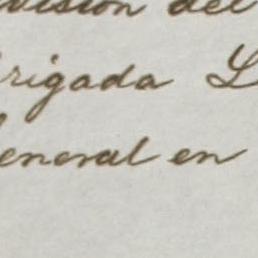 ivision del
rigada L
eneral en